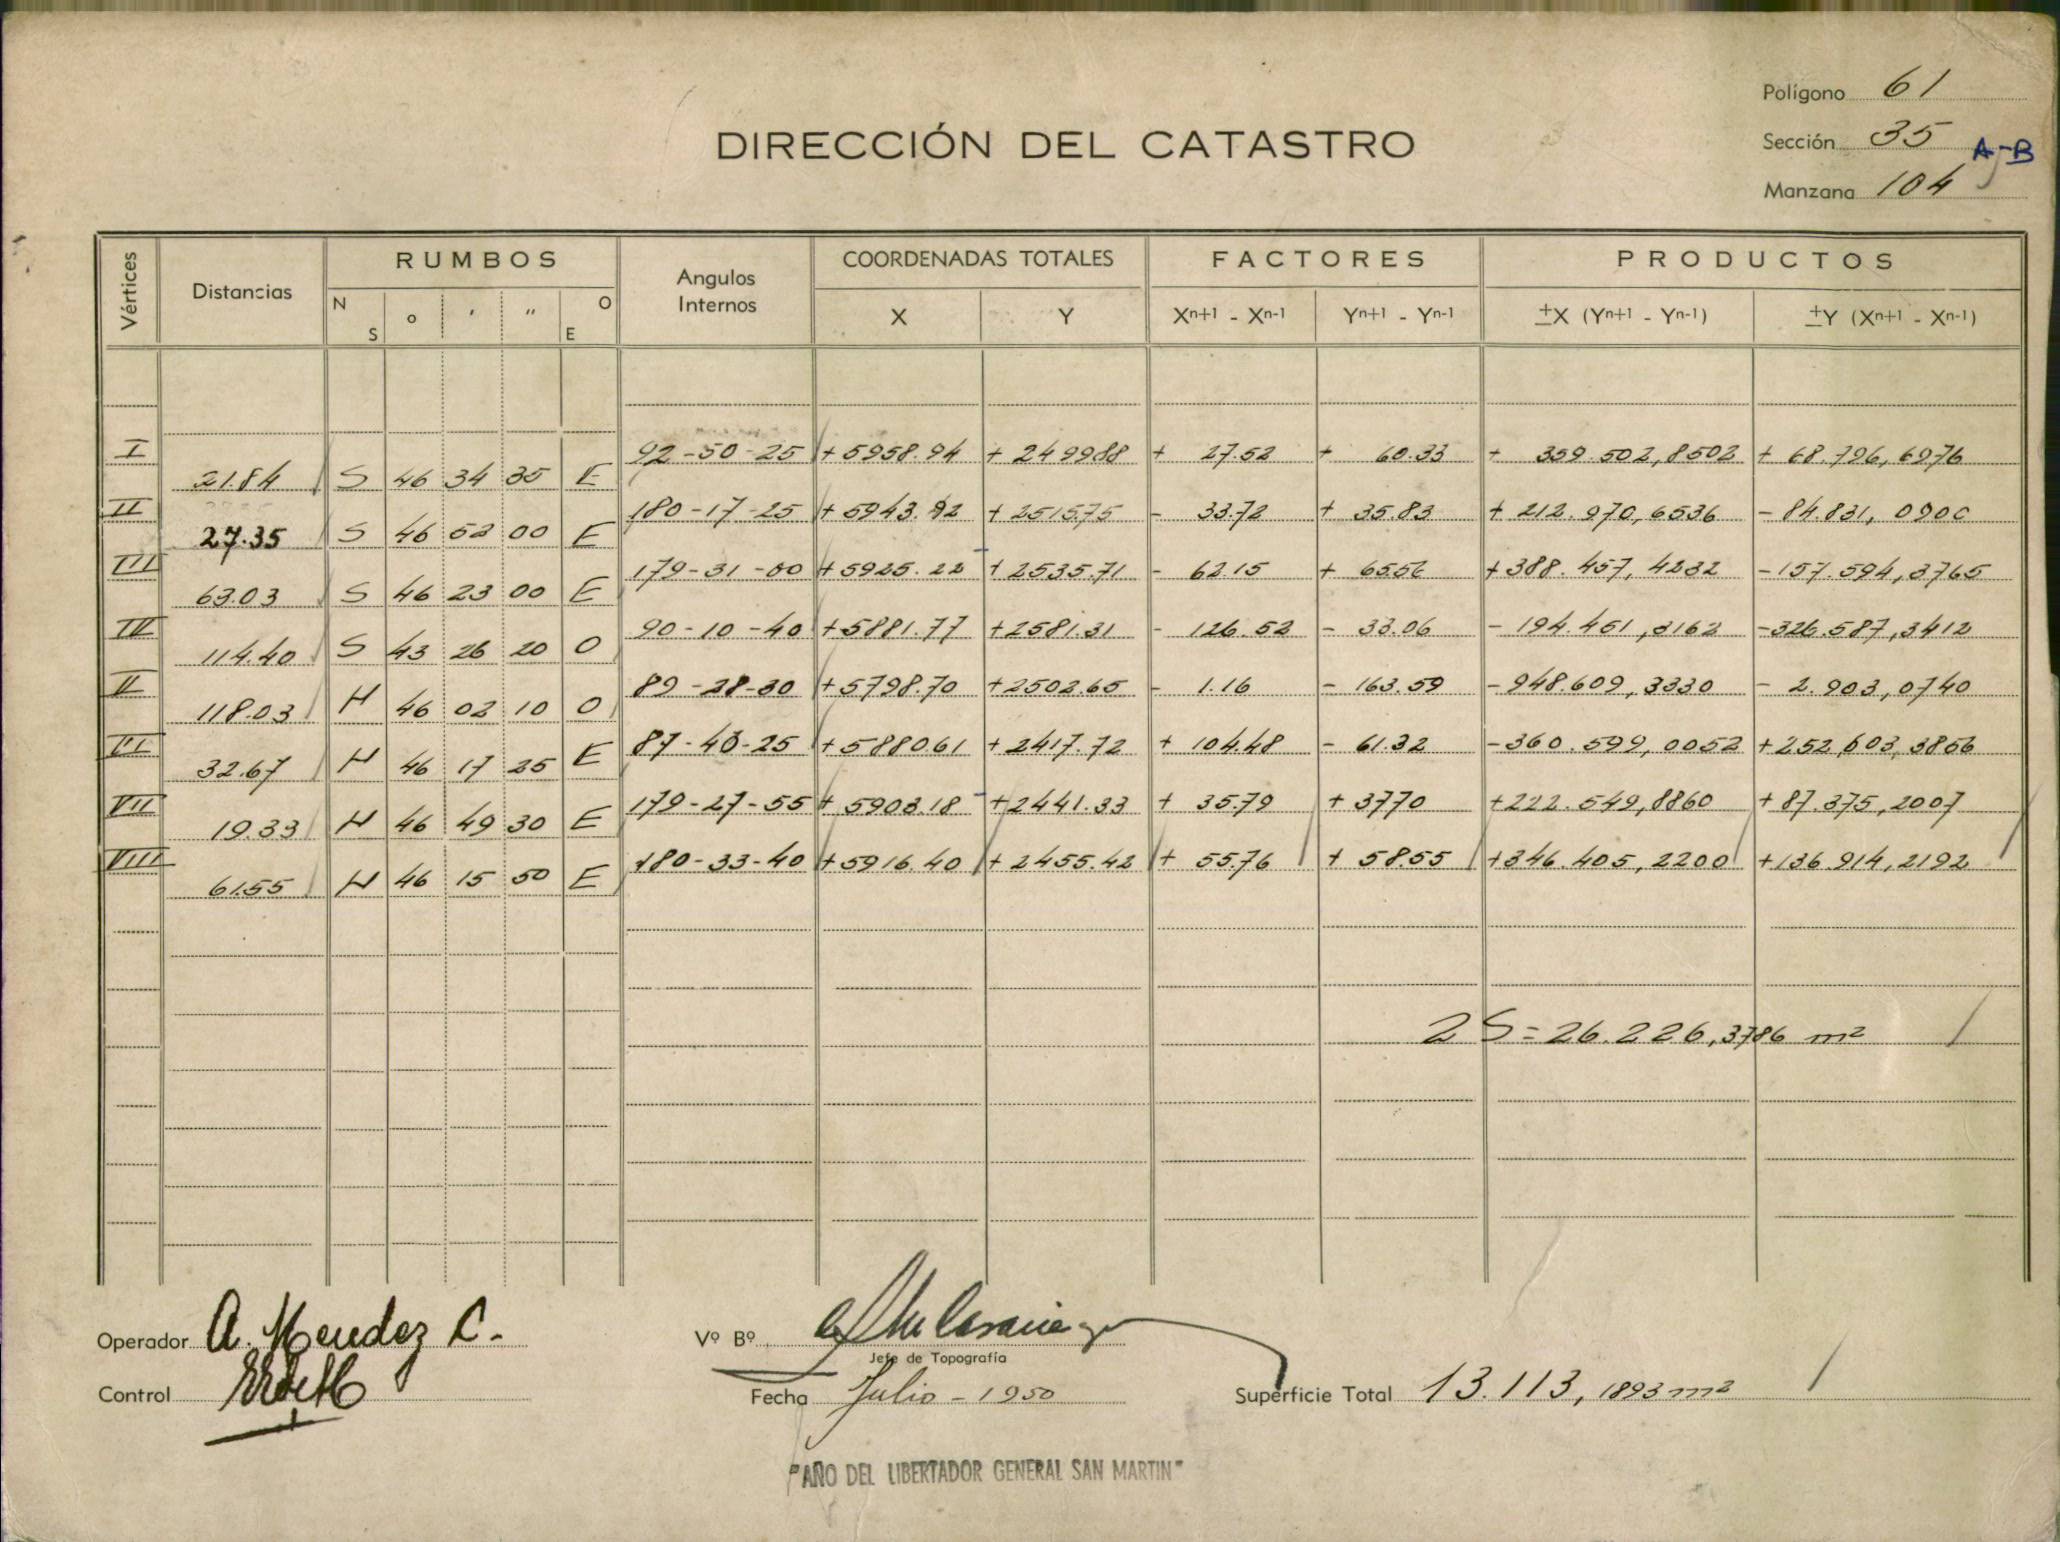 Polígono 61
DIRECCIÓN DEL CATASTRO
Sección 35 A-B
Manzana 104
Vértices Distancias RUMBOS N S o ' " O E Angulos Internos COORDENADAS TOTALES X Y FACTORES Xn+1 - Xn-1 Yn+1 - Yn-1 PRODUCTOS ±X (Yn+1 - Yn-1) ±Y (Xn+1 - Xn-1)
I 92-50-25 +5958.94 +249988 + 27.52 + 60.33 + 359.502,8502 + 68.796,6976
21.84 S 46 34 35 E
II 180-17-25 +5943.92 +251575 - 33.72 + 35.83 + 212.970,6536 - 84.831,0900
27.35 S 46 52 00 E
III 179-31-00 +5925.22 +2535.71 - 62.15 + 65.56 +388.457,4232 -157.594,3765
63.03 S 46 23 00 E
IV 90-10-40 +5881.77 +2581.31 - 126.52 - 33.06 - 194.451,3162 -326.587,3412
114.40 S 43 26 20 O
V 89-28-30 +5798.70 +2502.65 - 1.16 - 163.59 -948.609,3330 - 2.903,0740
118.03 N 46 02 10 O
VI 87-40-25 +5880.61 +2417.72 + 104.48 - 61.32 -360.599,0052 +252.603,3856
32.67 N 46 17 25 E
VII 179-27-55 + 5903.18 +2441.33 + 35.79 + 3770 +222.549,8860 + 87.375,2007
19.33 N 46 49 30 E
VIII 180-33-40 +5916.40 + 2455.42 + 55.76 + 58.55 +346.405,2200 +136.914,2192
61.55 N 46 15 50 E
2 S = 26.226,3786 m²
Operador A. Mendez C.
Vº Bº
Jefe de Topografía
Control
Fecha Julio - 1950
Superficie Total 13.113,1893 m²
"AÑO DEL LIBERTADOR GENERAL SAN MARTIN"